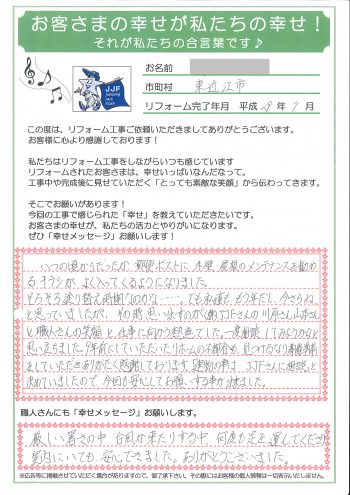 お客さまの幸せが私たちの幸せ！
それが私たちの合言葉です♪
JJF
お名前
市町村 東近江市
リフォーム完了年月 平成 29年 9月
この度は、リフォーム工事ご依頼いただきましてありがとうございます。
お客様に心より感謝しております！
私たちはリフォーム工事をしながらいつも感じています
リフォームされたお客さまは、幸せいっぱいなんだなって。
工事中や完成後に見せていただく「とっても素敵な笑顔」から伝わってきます。
そこでお願いがあります！
今回の工事で感じられた「幸せ」を教えていただきたいです。
お客さまの幸せが、私たちの活力とやりがいになります。
ぜひ「幸せメッセージ」お願いします！
いつの頃からだったか、郵便ポストに、外壁、屋根のメンテナンスを勧める
チラシが、よく入ってくるようになりました。
そろそろ塗り替え時期なのかな……。でもお値段も、どうだろう、今さらね
と思っていましたが、その時思い出すのが(株)JJFさんの川原さん、山本さん
と職人さんの笑顔と仕事に向かう姿でした。一度相談してみようかなと
思い立ちました。
していただきありがたく感謝しております。建物の事は、JJFさんに相談と
決めていましたので、今回も安心してお願いする事が出来ました。
職人さんにも「幸せメッセージ」お願いします。
厳しい暑さの中、台風の来たりする中、何度も足を運んでくださり
室内にいても、安心できました。ありがとうございました。
※広告等に掲載させていただく場合がありますので、御了承下さい。その際にはお客様の個人情報は一切表示いたしません。